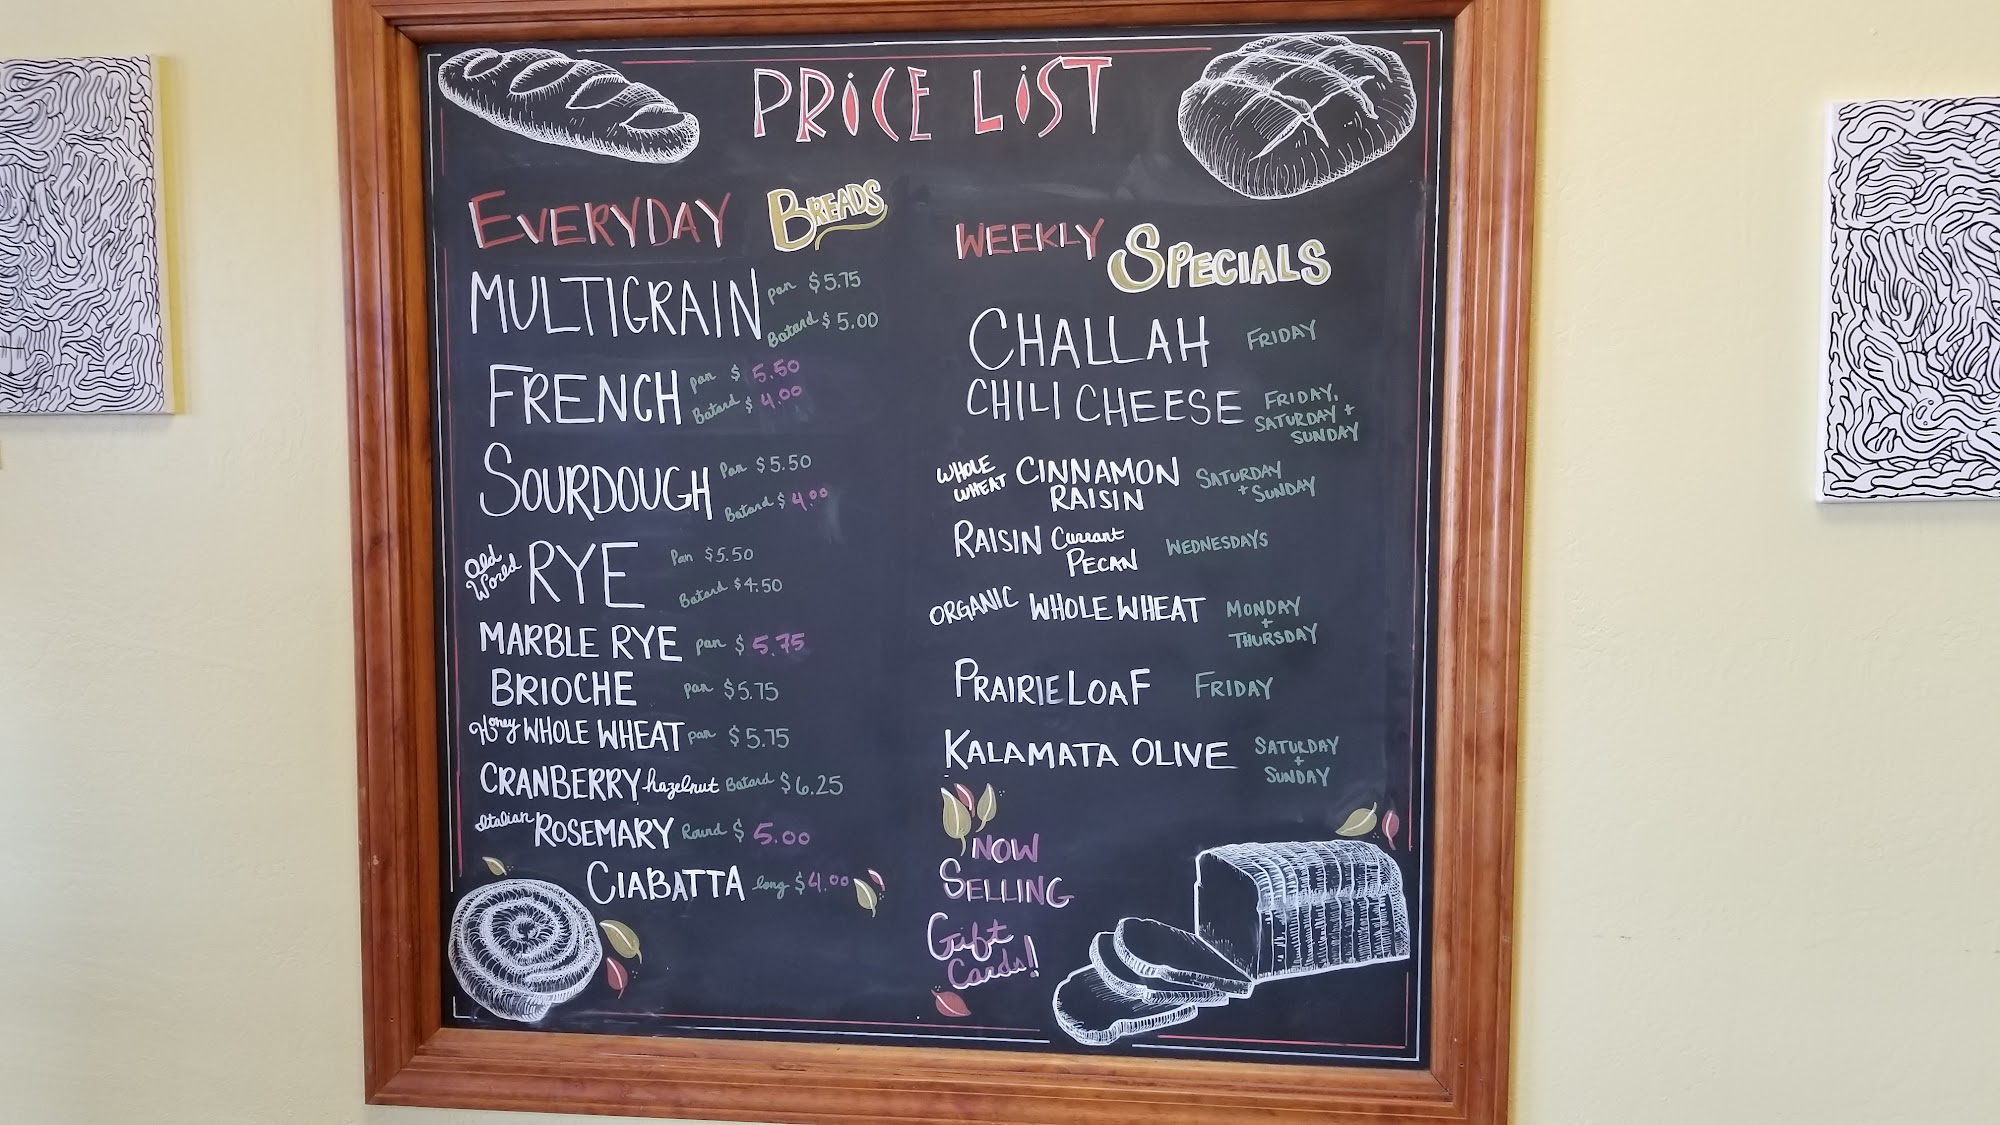 PRICE LIST
EVERYDAY BREADS
MULTIGRAIN pan $5.75
Batard $5.00
FRENCH pan $5.50
Batard $4.00
SOURDOUGH Pan $5.50
Batard $4.00
Old World RYE Pan $5.50
Batard $4.50
MARBLE RYE pan $5.75
BRIOCHE pan $5.75
Honey WHOLE WHEAT pan $5.75
CRANBERRY hazelnut Batard $6.25
Italian ROSEMARY Round $5.00
CIABATTA long $4.00
WEEKLY SPECIALS
CHALLAH FRIDAY
CHILI CHEESE FRIDAY,
SATURDAY +
SUNDAY
WHOLE WHEAT CINNAMON SATURDAY
RAISIN + SUNDAY
RAISIN Currant WEDNESDAYS
PECAN
ORGANIC WHOLE WHEAT MONDAY
+
THURSDAY
PRAIRIE LOAF FRIDAY
KALAMATA OLIVE SATURDAY
+
SUNDAY
NOW
SELLING
Gift
Cards!